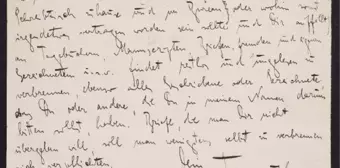 Schreibtisch zuhause und im Bureau, oder wohin sonst
irgendetwas vertragen worden sein sollte und Dir auffällt)
an Tagebüchern, Manuscripten, Briefen, fremden und eigenen,
Gezeichnetem u.s.w. findet restlos und ungelesen zu
verbrennen ebenso alles Geschriebene oder Gezeichnete
das Du oder andere, die Du in meinem Namen darum
bitten sollst, haben. Briefe, die man Dir nicht
übergeben will, soll man wenigstens selbst zu verbrennen
sich verpflichten
Dein